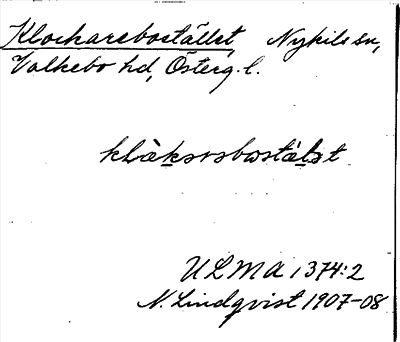 Klockarebostället, Nykils sn,
Valkebo hd, Österg. l.
klåksrsbostälst
ULMA 1374:2
N. Lindqvist 1907-08